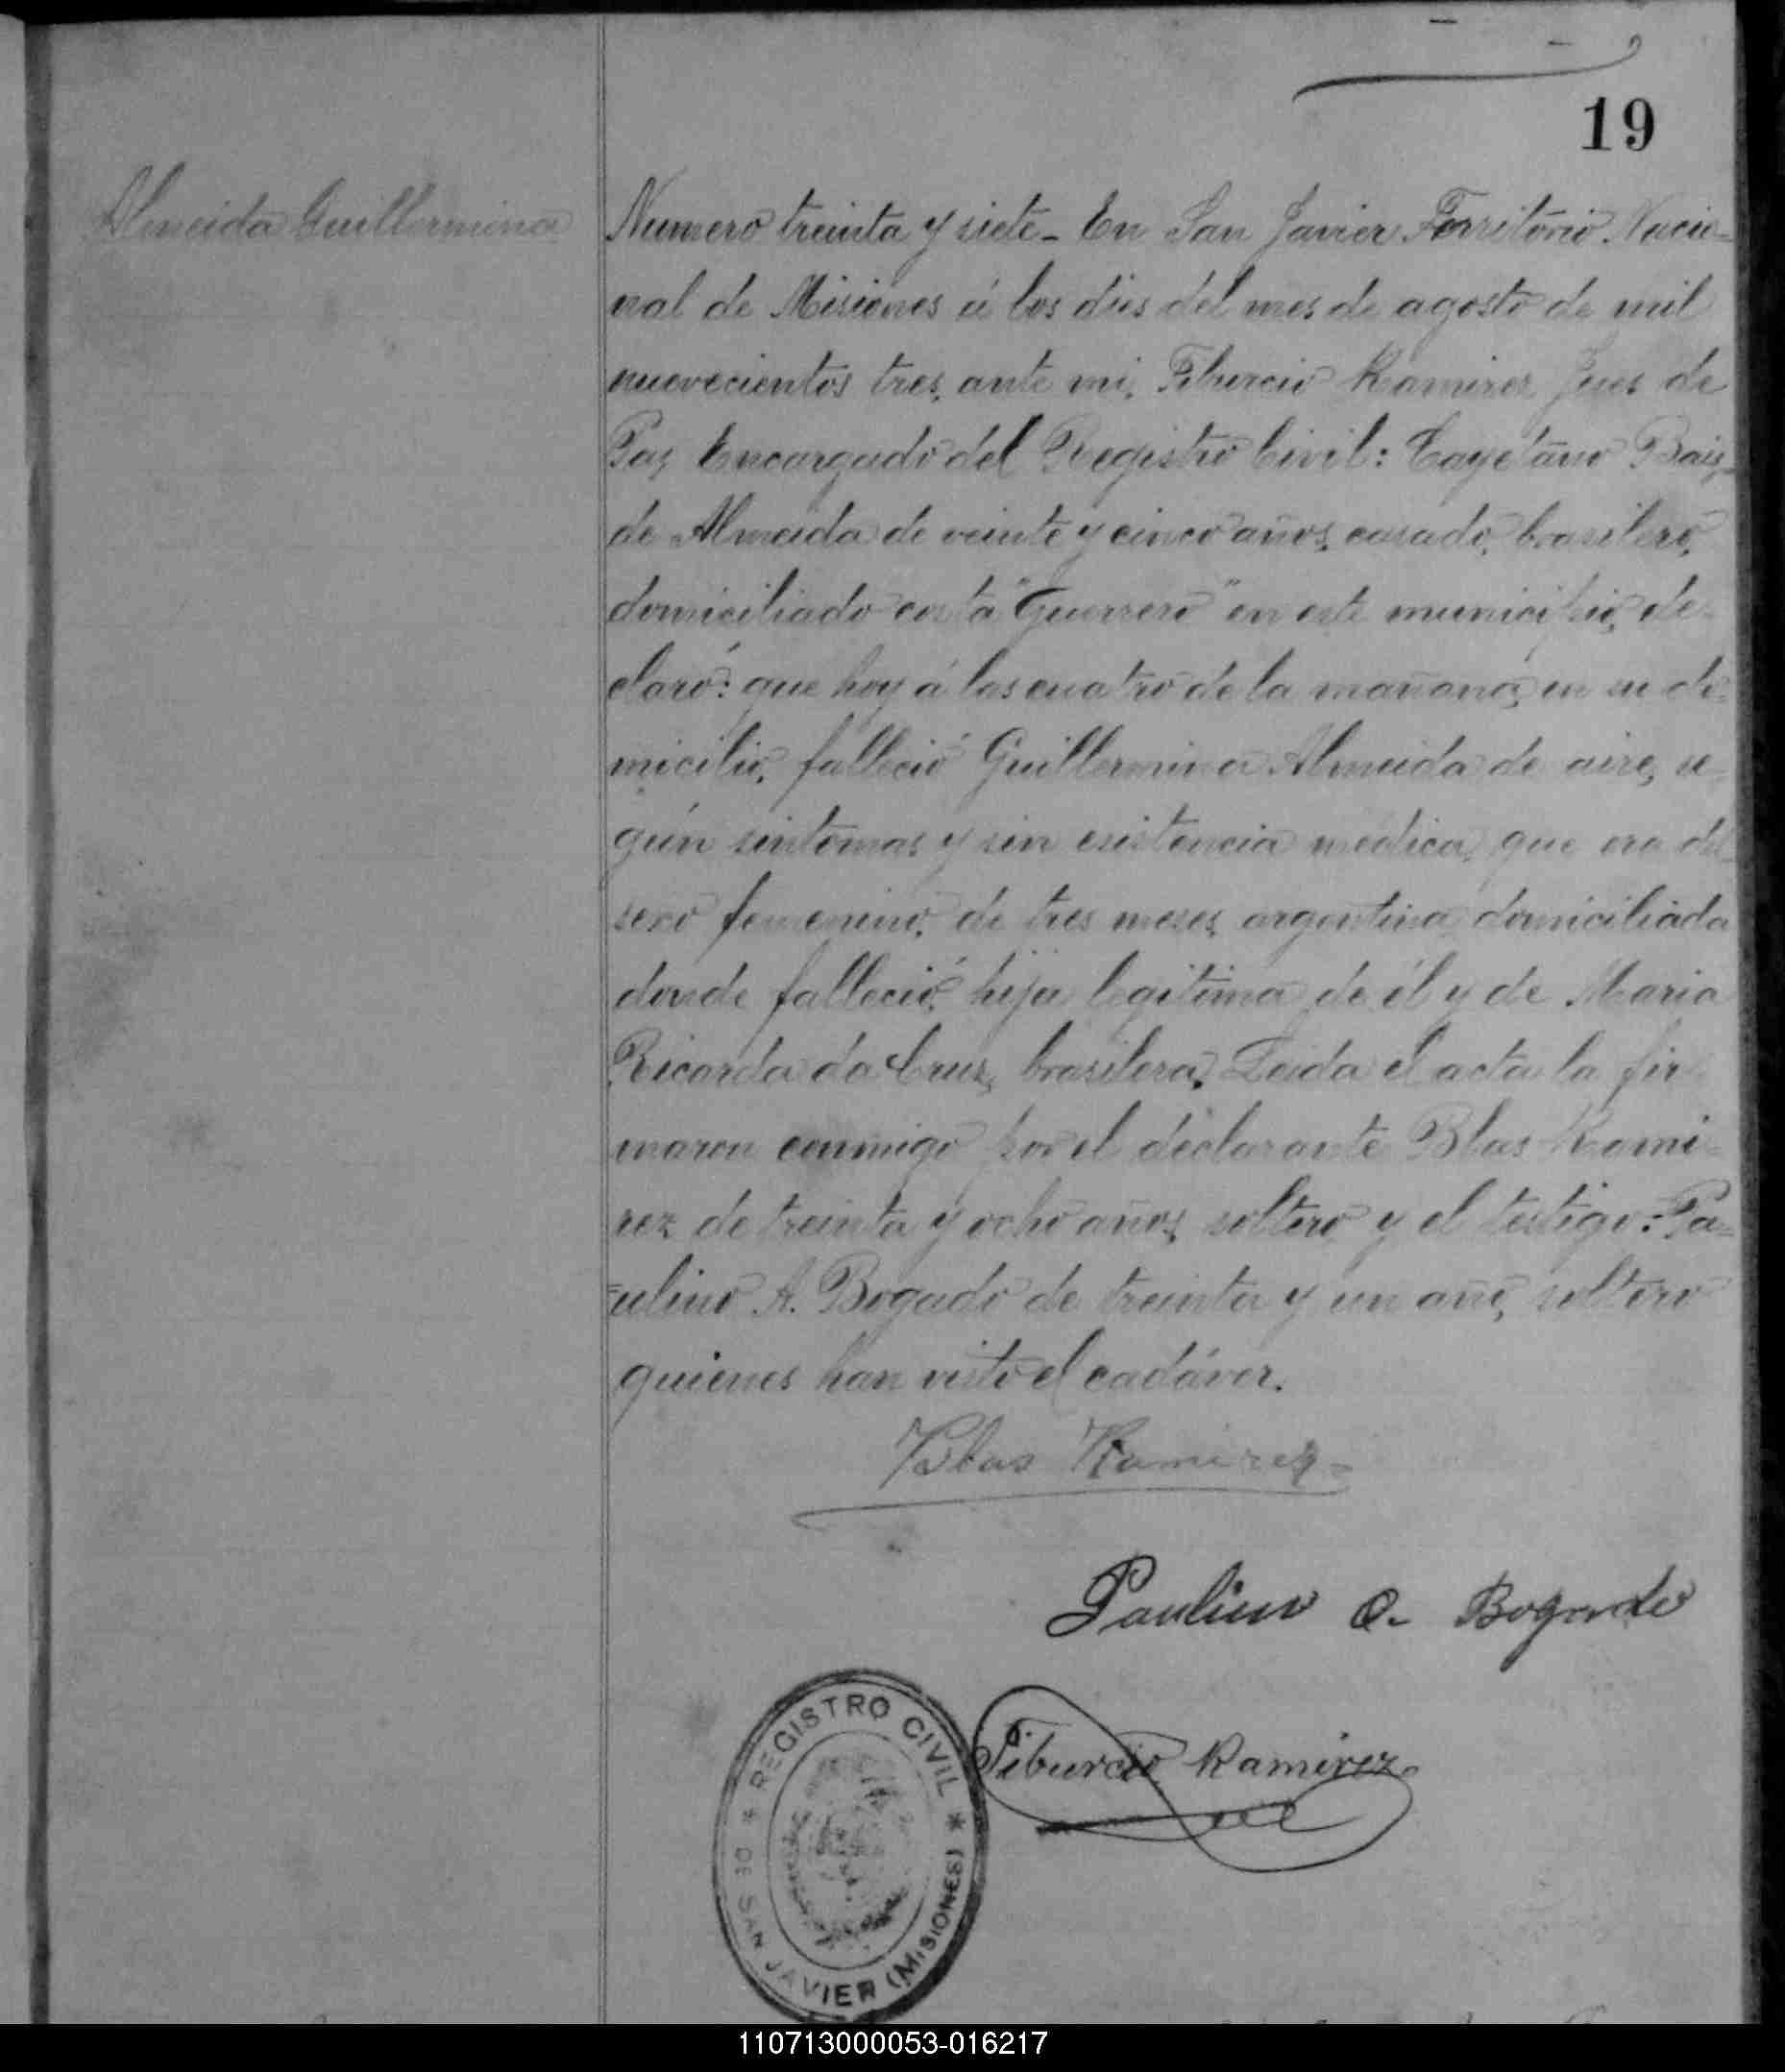 19
Almeida Guillermina
Numero treinta y siete - En San Javier Territorio Nacio-
nal de Misiones á los dies del mes de agosto de mil
nuevecientos tres, ante mi, Tiburcio Ramirez Jues de
Paz Encargado del Registro Civil: Cayetano Bais
de Almeida de veinte y cinco años, casado, brasilero,
domiciliado costa "Guerrero" en este municipio, de-
claró: que hoy á las cuatro de la mañana, en su do-
micilio, falleció Guillermina Almeida de aire, se-
gún sintomas y sin esistencia médica, que era del
sexo femenino, de tres meses, argentina, domiciliada
donde falleció, hija legitima de él y de Maria
Ricarda da Cruz, brasilera. Leida el acta la fir-
maron conmigo por el declarante Blas Rami-
rez de treinta y ocho años, soltero y el testigo: Pa-
ulino A. Bogado de treinta y un año, soltero
quienes han visto el cadáver.
Blas Ramirez -
Paulino A. Bogado
Tiburcio Ramirez
* REGISTRO CIVIL *
DE SAN JAVIER (MISIONES)
110713000053-016217